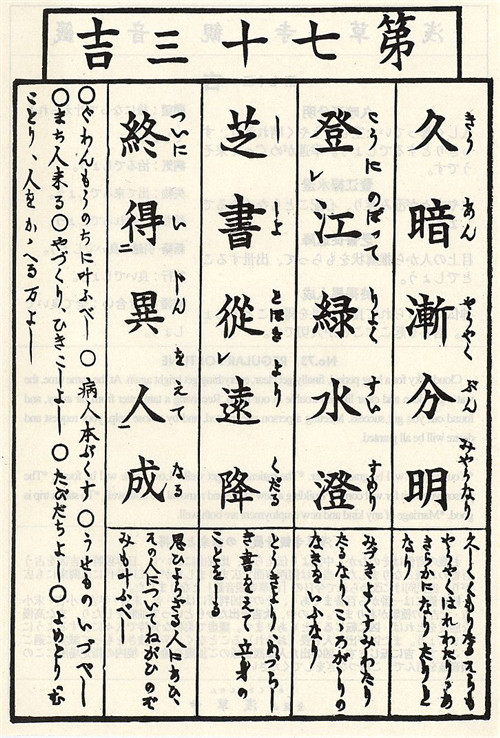 第七十三吉
久暗漸分明
きう あん やうやく ぶん みやうなり
登レ江緑水澄
こうにのぼつて りよく すい すめり
芝書從レ遠降
し しよ とほきより くだる
終得異人成
ついに い じんをえて なる
久しくくもりたるそらも
やうやくはれわたりあ
きらかになりたりと
なり
みづきよくすみわたり
たるなり、こゝろがゝりの
なきをいふなり
とをきより、めづらし
き書をえて立身の
ことをしる
思ひよらざる人にあひ、
その人についてねがひのぞ
みも叶ふべし
〇ぐわんもうのちに叶ふべし〇病人本ぷくす〇うせものいづべし
〇まち人来る〇やづくり、ひきこしよし〇たびだちよし〇よめとりむ
ことり、人をかゝへる万よし